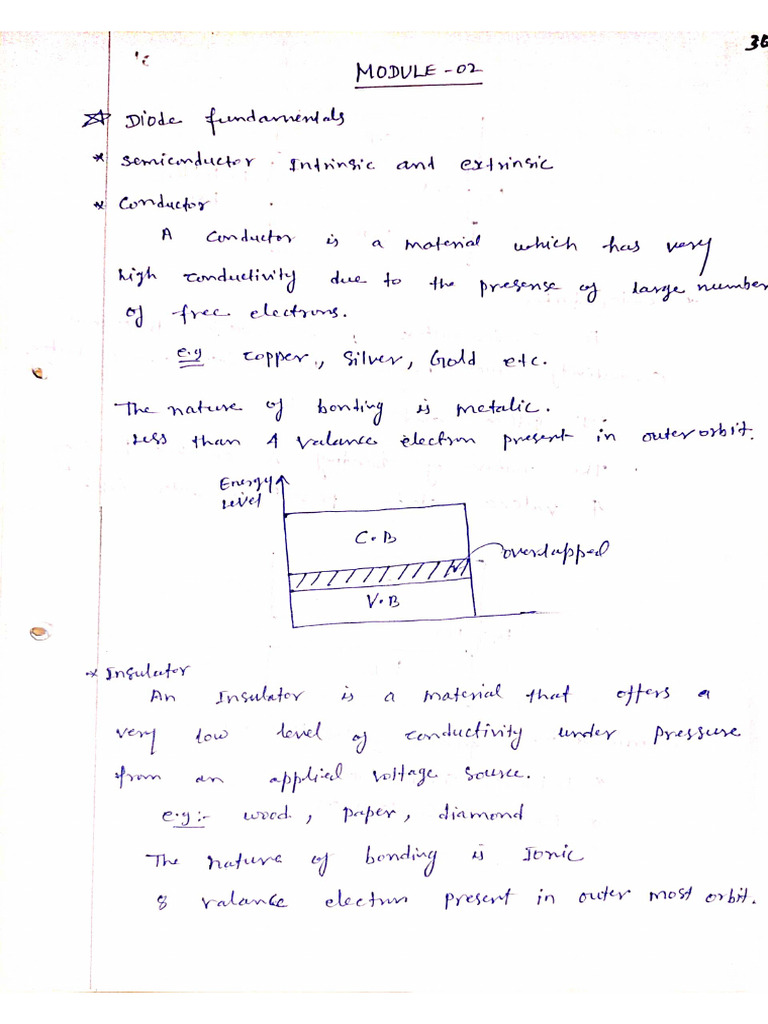 36
MODULE-02
Diode fundamentals
* Semiconductor Intrinsic and extrinsic
* Conductor
A Conductor is a material which has very
high conductivity due to the presense of large number
of free electrons.
e.g copper, Silver, Gold etc.
The nature of bonding is metalic.
Less than 4 valance electron present in outer orbit.
Energy
Level
C.B
overlapped
V.B
* Insulator
An Insulator is a material that offers a
very low level of conductivity under pressure
from an applied voltage source.
e.g:- wood, paper, diamond
The nature of bonding is Ionic
8 valance electrun present in outer most orbit.